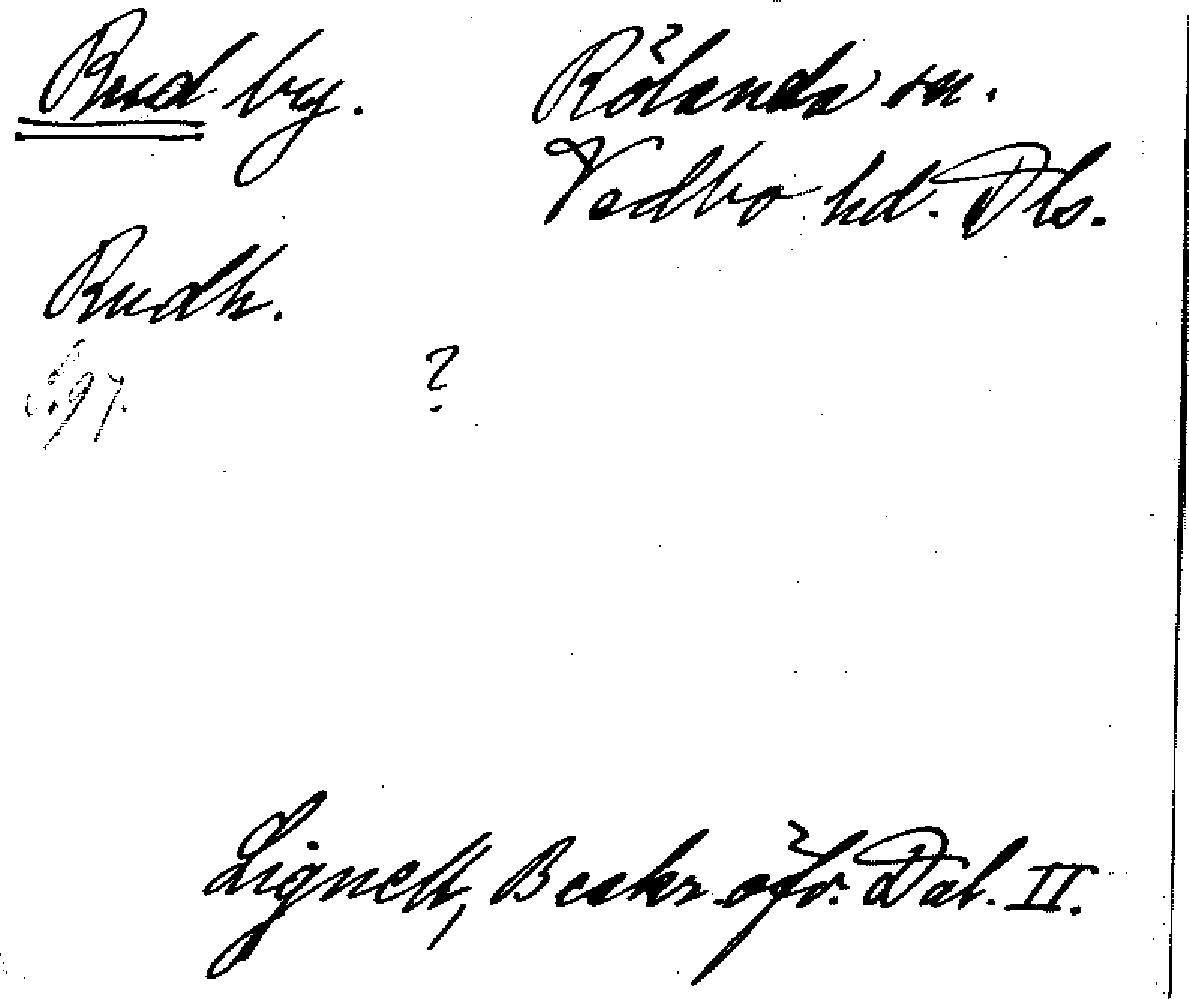 Rud by. Rölanda sn.
Vedbo hd. Dls.
Rudh.
S.97. ?
Lignell, Beskr. öfv. Dal. II.